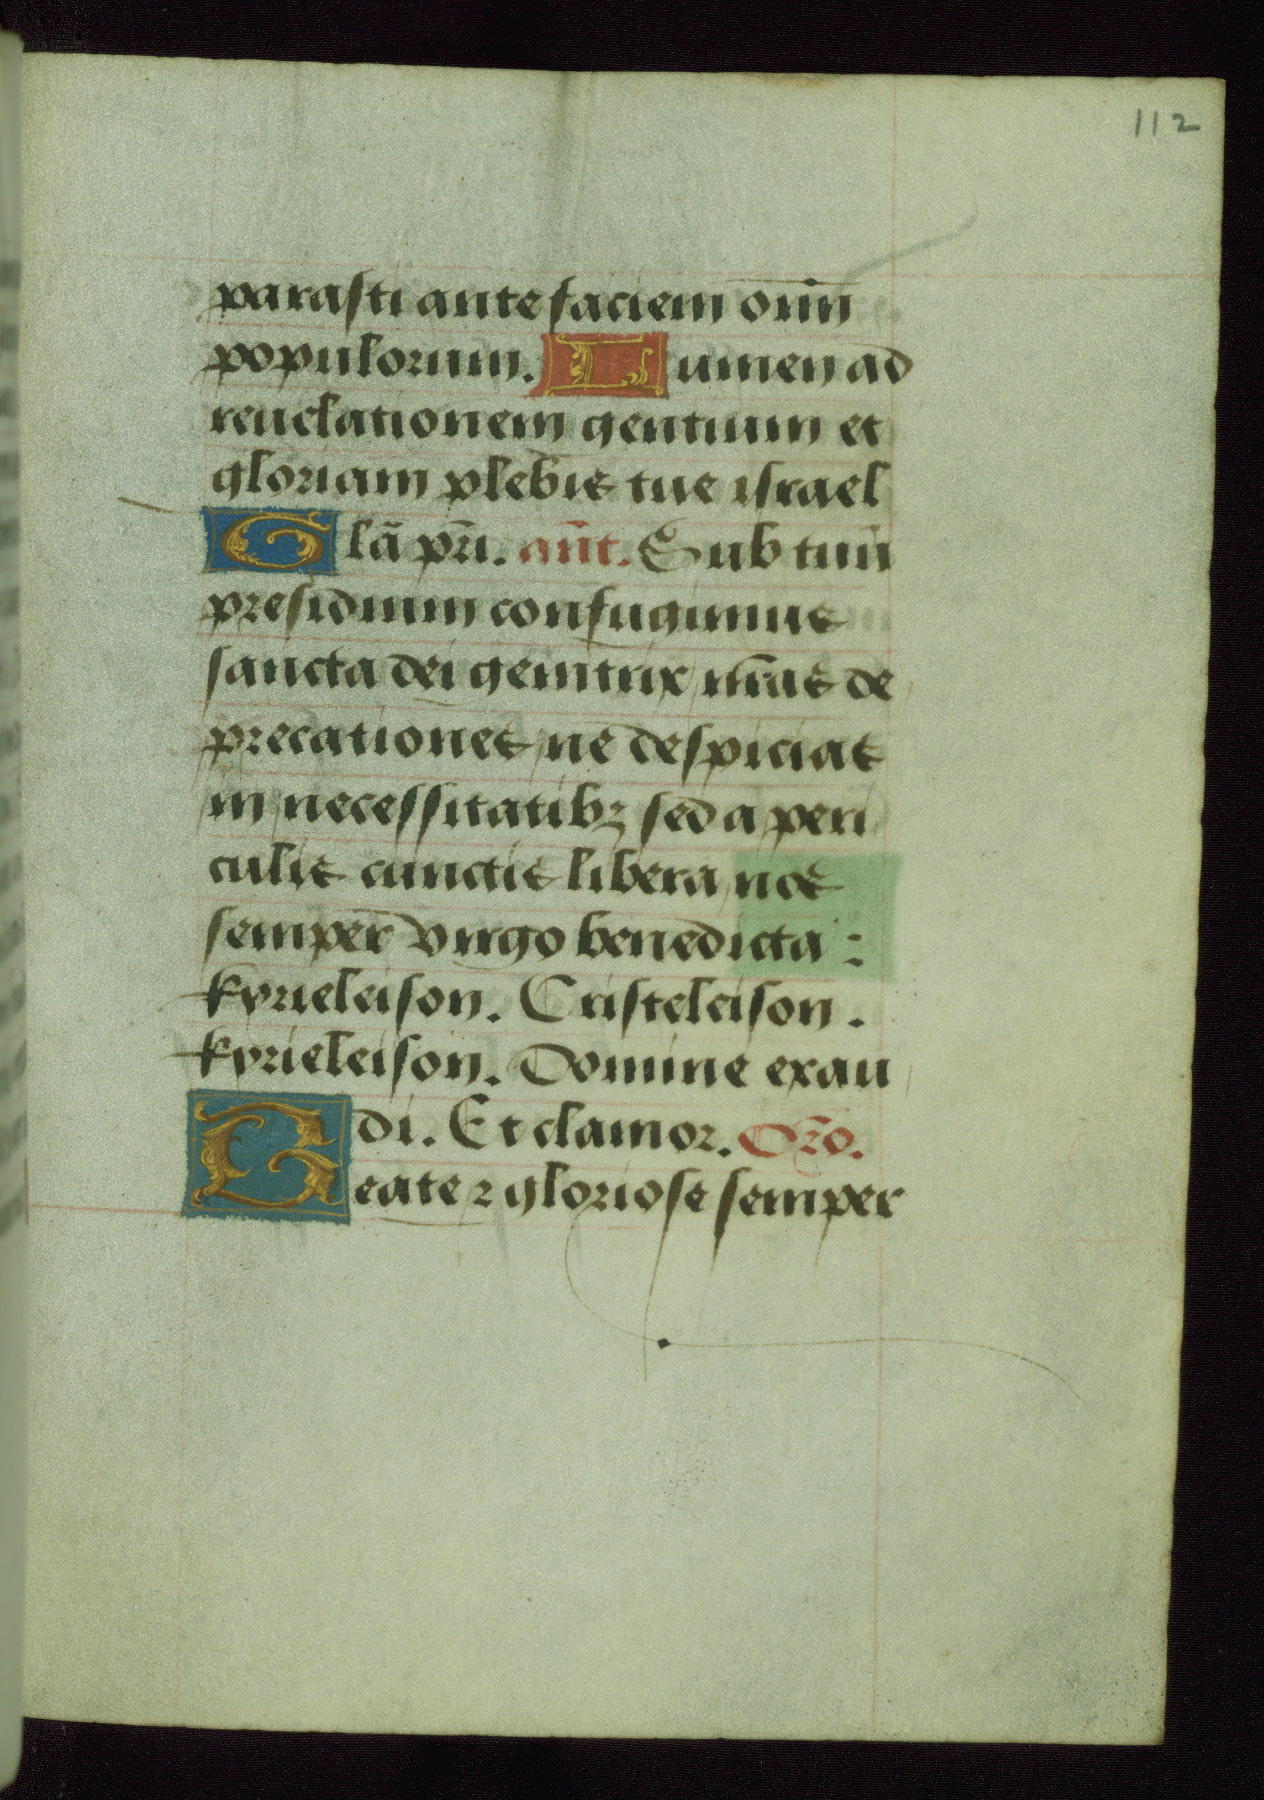 112
parasti ante faciem om̄
populorum. Lumen ad
reuelationem gentium et
gloriam plebis tue israel
Glã pr̃i. añt. Sub tuũ
presidium confugimus
sancta dei genitrix nr̃as de
precationes ne despicias
in necessitatibꝫ sed a peri
culis cunctis libera nos
semper virgo benedicta :
kyrieleison. Cristeleison.
kyrieleison. Domine exau
di. Et clamor. Or̃o.
Beate ⁊ gloriose semper